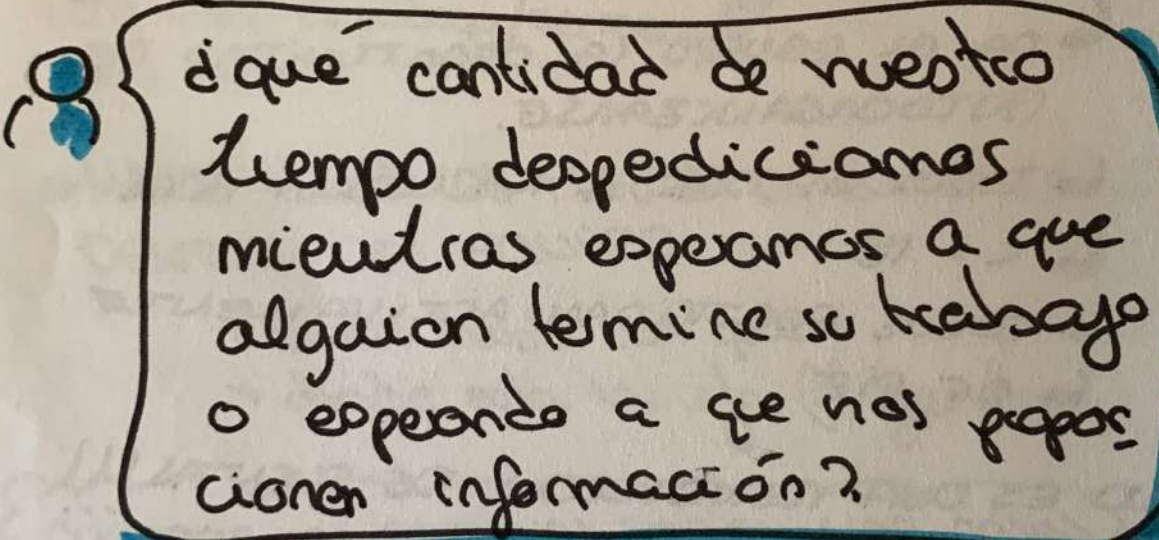 ¿qué cantidad de nuestro
tiempo desperdiciamos
mientras esperamos a que
alguien termine su trabajo
o esperando a que nos propor
cionen información?